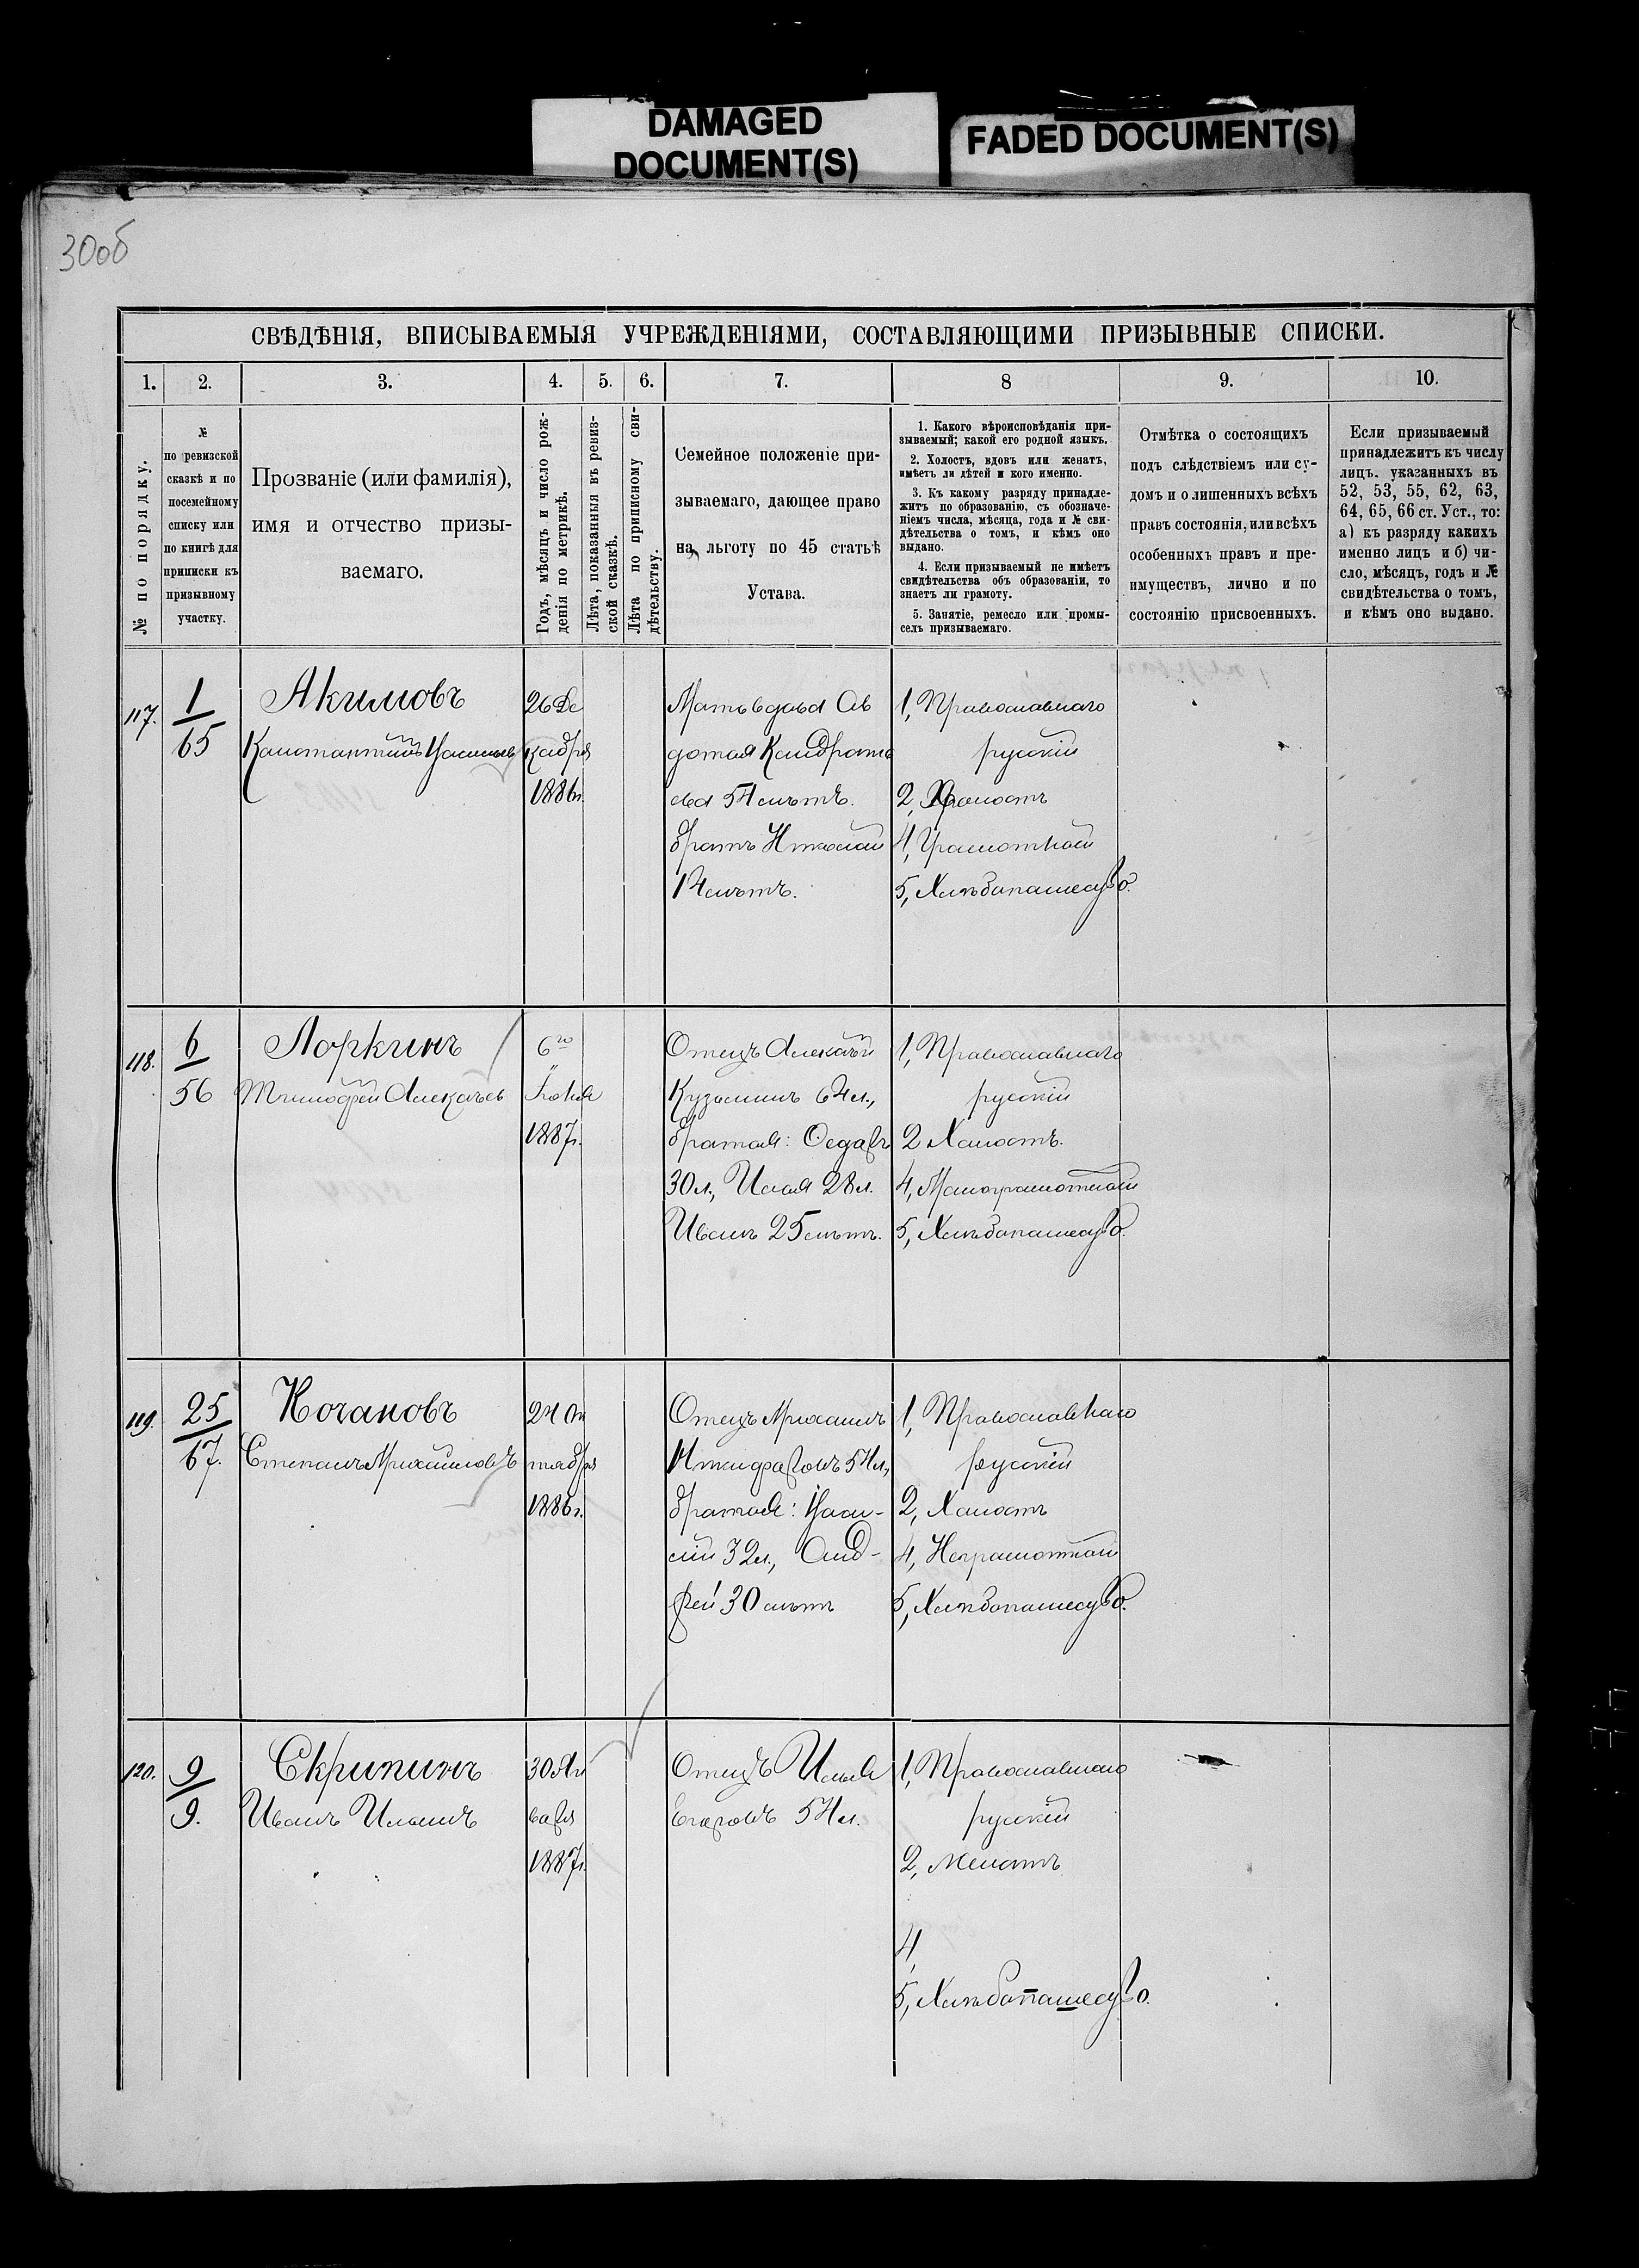 DAMAGED
DOCUMENT(S)
FADED DOCUMENT(S)
30об
СВѢДѢНІЯ, ВПИСЫВАЕМЫЯ УЧРЕЖДЕНІЯМИ, СОСТАВЛЯЮЩИМИ ПРИЗЫВНЫЕ СПИСКИ.
1. 2. 3. 4. 5. 6. 7. 8 9. 10.
№ по порядку.
№
по ревизской
сказкѣ и по
посемейному
списку или
по книгѣ для
приписки къ
призывному
участку.
Прозваніе (или фамилія),
имя и отчество призы-
ваемаго.
Годъ, мѣсяцъ и число рож-
денія по метрикѣ.
Лѣта, показанныя въ ревиз-
ской сказкѣ.
Лѣта по приписному сви-
дѣтельству.
Семейное положеніе при-
зываемаго, дающее право
на льготу по 45 статьѣ
Устава.
1. Какого вѣроисповѣданія при-
зываемый; какой его родной языкъ.
2. Холостъ, вдовъ или женатъ,
имѣетъ ли дѣтей и кого именно.
3. Къ какому разряду принадле-
житъ по образованію, съ обозначе-
ніемъ числа, мѣсяца, года и № сви-
дѣтельства о томъ, и кѣмъ оно
выдано.
4. Если призываемый не имѣетъ
свидѣтельства объ образованіи, то
знаетъ ли грамоту.
5. Занятіе, ремесло или промы-
селъ призываемаго.
Отмѣтка о состоящихъ
подъ слѣдствіемъ или су-
домъ и о лишенныхъ всѣхъ
правъ состоянія, или всѣхъ
особенныхъ правъ и пре-
имуществъ, лично и по
состоянію присвоенныхъ.
Если призываемый
принадлежитъ къ числу
лицъ. указанныхъ въ
52, 53, 55, 62, 63,
64, 65, 66 ст. Уст., то:
а) къ разряду какихъ
именно лицъ и б) чи-
сло, мѣсяцъ, годъ и №
свидѣтельства о томъ,
и кѣмъ оно выдано.
117.
1
65
Акимовъ
26 Де
кабря
1886г.
Мать вдова Ав
дотья Кандрать
ева 54 лѣтъ.
братъ Николай
14 лѣтъ.
1, Православнаго
русскій
2, Холостъ
4, Грамотной
5, Хлѣбопашество.
118.
6
56
Лоркинъ
Тимофей Алекаѣевъ
6го
Іюня
1887г.
Отецъ Алекаѣй
Кузьминъ 64 л.,
братья: Федаръ
30 л., Илья 28 л.
Иванъ 25 лѣтъ.
1, Православнаго
русскій
2 Халостъ.
4, Малограмотной
5, Хлѣбопашество.
119.
25
67.
Кочановъ
Степанъ Михайловъ
24 Ок
тября
1886г.
Отецъ Михаилъ
Никифаровъ 54 л.,
братья: Васи-
лій 32 л., Анд-
рей 30 лѣтъ
1, Православнаго
русскій
2, Халостъ
4, Неграмотной
5, Хлѣбопашество.
120.
9
9.
Скрипинъ
Иванъ Ильинъ
30 Ян
варя
1887г.
Отецъ Илья
Егаровъ 54 л.
1, Православнаго
русскій
2, Женатъ
4,
5, Хлѣбопашество.